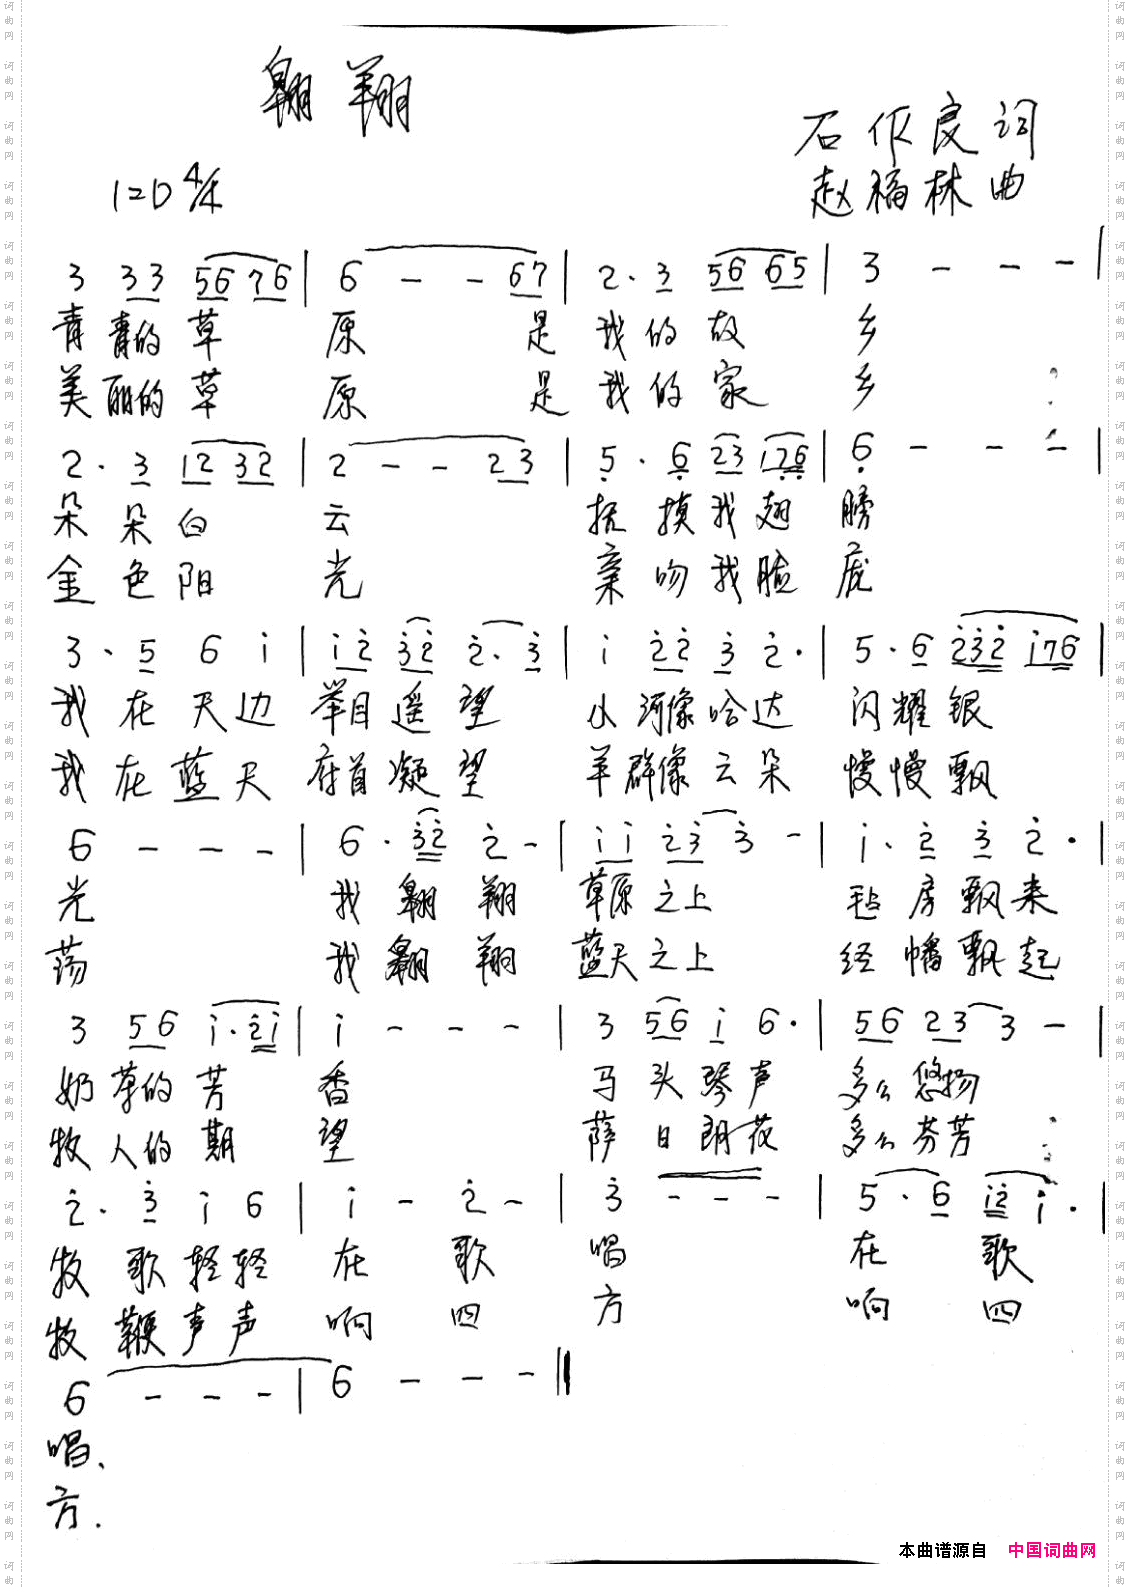 翱翔
石作良词
1=D 4/4
赵福林曲
3 33 56 76 | 6 - - 67 | 2· 3 56 65 | 3 - - - |
青青的草 原 是 我的故 乡
美丽的草 原 是 我的家 乡
2· 3 12 32 | 2 - - 23 | 5· 6 23 176 | 6 - - - |
朵朵白 云 抚摸我翅 膀
金色阳 光 亲吻我脸 庞
3· 5 6 i | i2 32 2· 3 | i 22 3 2· | 5· 6 232 i76 |
我在天边 举目遥望 小河像哈达 闪耀银
我在蓝天 府首凝望 羊群像云朵 慢慢飘
6 - - - | 6· 32 2 - | ii 23 3 - | i· 2 3 2· |
光 我翱翔 草原之上 毡房飘来
荡 我翱翔 蓝天之上 经幡飘起
3 56 i·2i | i - - - | 3 56 i 6· | 56 23 3 - |
奶草的芳 香 马头琴声 多么悠扬
牧人的期 望 萨日朗花 多么芬芳
2· 3 i 6 | i - 2 - | 3 - - - | 5· 6 i2 i· |
牧歌轻轻 在歌 唱 在歌
牧鞭声声 响四 方 响四
6 - - - | 6 - - - ‖
唱、
方.
本曲谱源自 中国词曲网